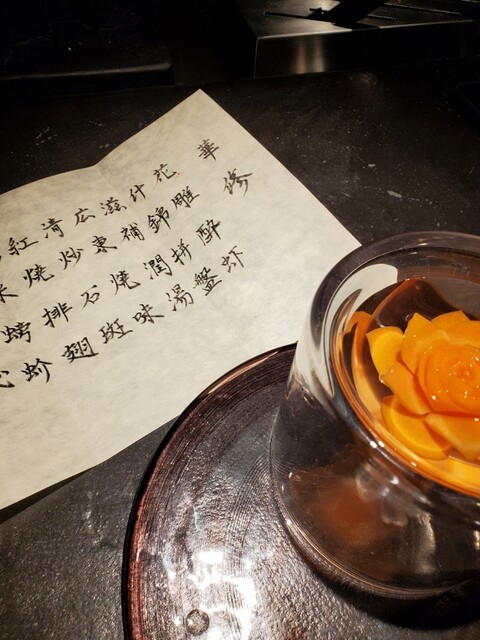 華修
花雕酔虾
什錦拼盤
滋補潤湯
広東焼味
清炒石斑
紅焼排翅
螃蚧